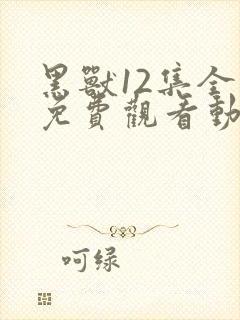 黑獸12集全
免費觀看動
呵绿